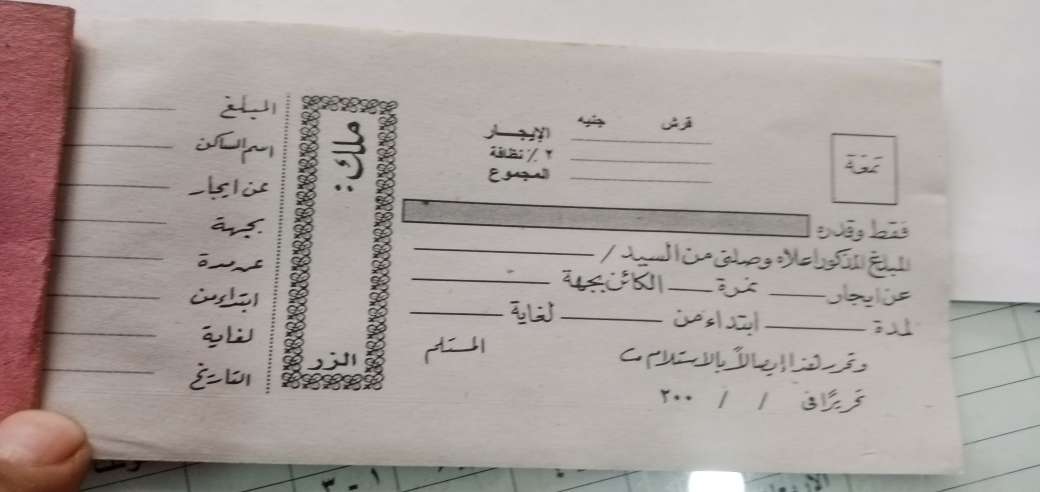 تمغة
قرش جنيه
الإيجار
٢ ٪ نظافة
المجموع
فقط وقدره
المبلغ المذكور أعلاه وصلنى من السيد /
عن ايجار نمرة الكائن بجهة
لمدة ابتداء من لغاية
وتحرر لهذا إيصالاً بالاستلام
المستلم
تحريرًا فى / / ٢٠٠
ملك :
الزر
المبلغ
اسم الساكن
عن ايجار
بجهة
عن مدة
ابتداء من
لغاية
التاريخ